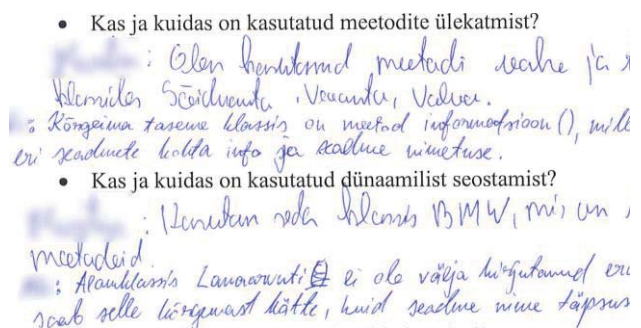 • Kas ja kuidas on kasutatud meetodite ülekatmist?
: Olen kasutanud meetodi vahe ja
klassides Sõiduauto, Veoauto, Valver.
: Kõrgeima taseme klassis on meetod informatsioon(), mille
eri seadmete kohta info ja seadme nimetuse.
• Kas ja kuidas on kasutatud dünaamilist seostamist?
: Kasutan seda klassis BMW, mis on
meetodeid.
: Alamklassis ei ole välja kirjutanud
saab selle kõrgemast kätte, kuid seadme nime täpsus